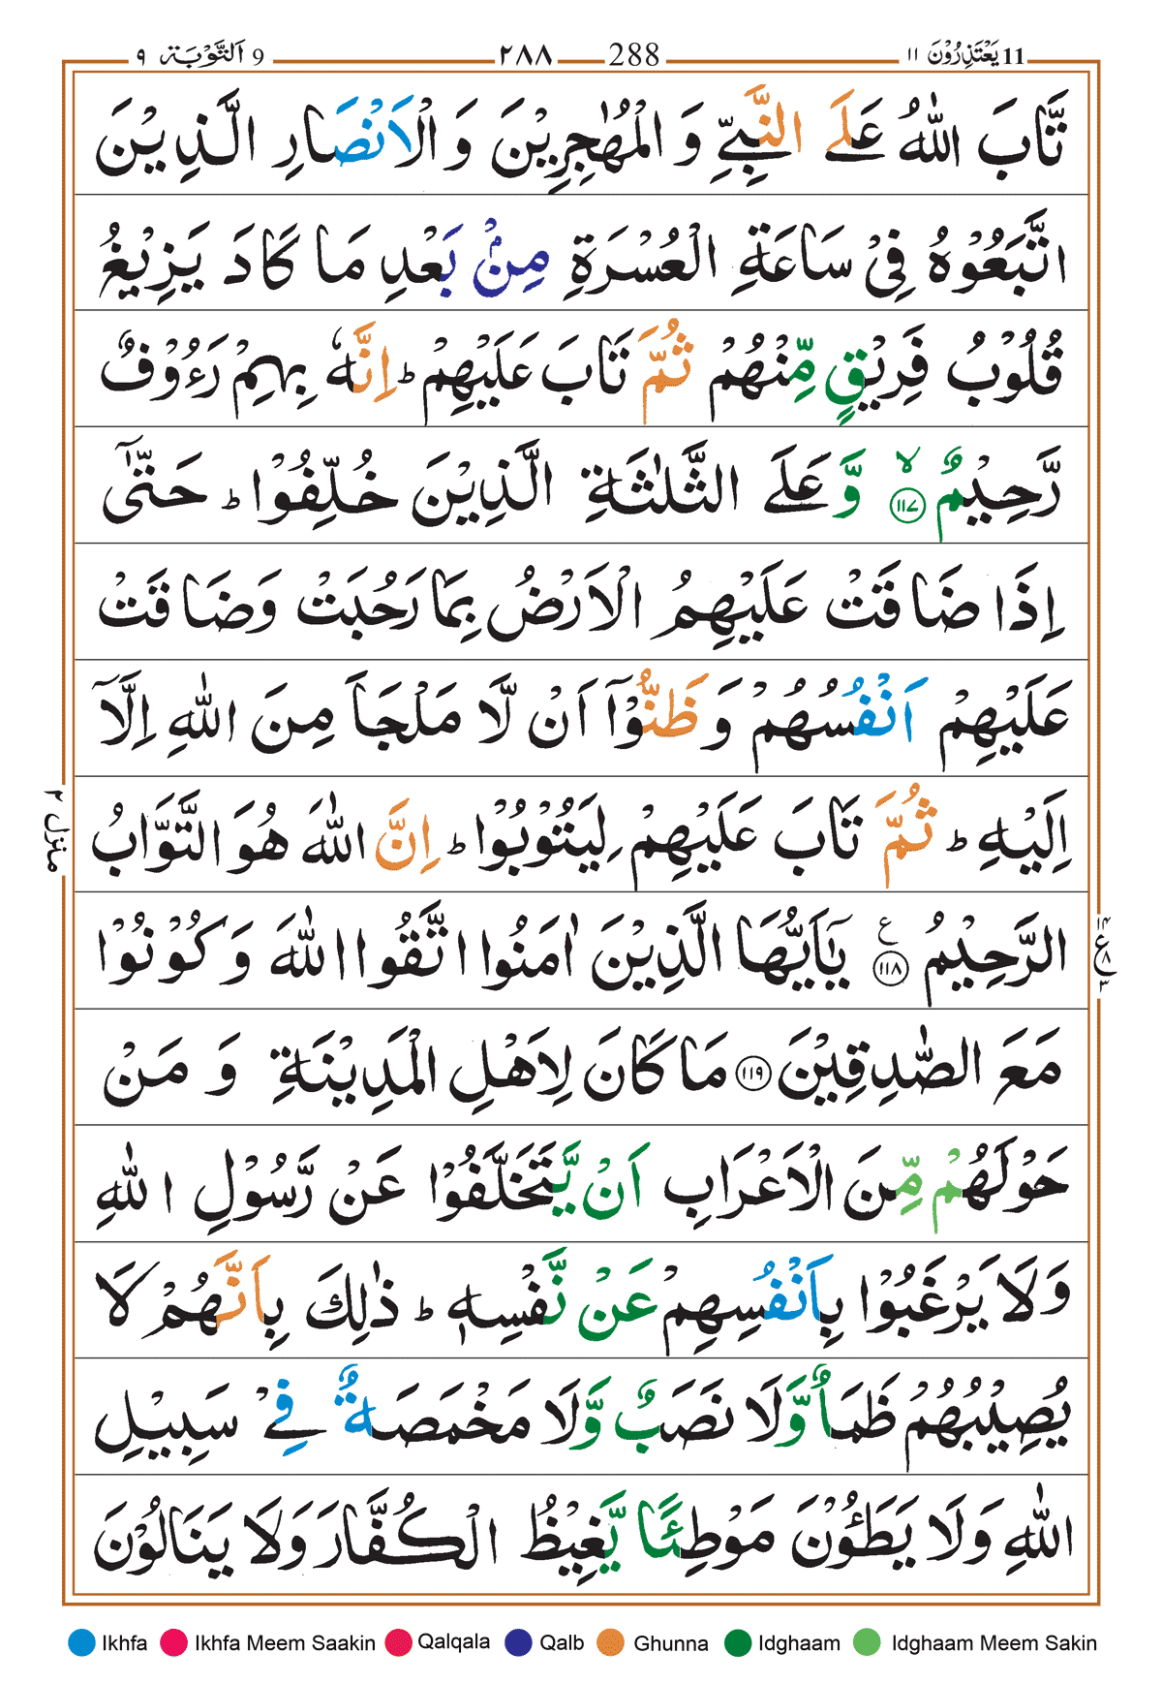 11 يَعْتَذِرُوْنَ ١١ 288 ٢٨٨ 9 اَلتَّوْبَة ٩
تَّابَ اللّٰهُ عَلَى النَّبِيِّ وَ الْمُهٰجِرِيْنَ وَ الْاَنْصَارِ الَّذِيْنَ
اتَّبَعُوْهُ فِيْ سَاعَةِ الْعُسْرَةِ مِنْۢ بَعْدِ مَا كَادَ يَزِيْغُ
قُلُوْبُ فَرِيْقٍ مِّنْهُمْ ثُمَّ تَابَ عَلَيْهِمْ ؕ اِنَّهٗ بِهِمْ رَءُوْفٌ
رَّحِيْمٌ ۙ ﴿١١٧﴾ وَّ عَلَى الثَّلٰثَةِ الَّذِيْنَ خُلِّفُوْا ؕ حَتّٰۤى
اِذَا ضَاقَتْ عَلَيْهِمُ الْاَرْضُ بِمَا رَحُبَتْ وَضَاقَتْ
عَلَيْهِمْ اَنْفُسُهُمْ وَ ظَنُّوْۤا اَنْ لَّا مَلْجَاَ مِنَ اللّٰهِ اِلَّاۤ
اِلَيْهِ ؕ ثُمَّ تَابَ عَلَيْهِمْ لِيَتُوْبُوْا ؕ اِنَّ اللّٰهَ هُوَ التَّوَّابُ
الرَّحِيْمُ ﴿١١٨﴾ ع يٰۤاَيُّهَا الَّذِيْنَ اٰمَنُوا اتَّقُوا اللّٰهَ وَ كُوْنُوْا
مَعَ الصّٰدِقِيْنَ ﴿١١٩﴾ مَا كَانَ لِاَهْلِ الْمَدِيْنَةِ وَ مَنْ
حَوْلَهُمْ مِّنَ الْاَعْرَابِ اَنْ يَّتَخَلَّفُوْا عَنْ رَّسُوْلِ اللّٰهِ
وَلَا يَرْغَبُوْا بِاَنْفُسِهِمْ عَنْ نَّفْسِهٖ ؕ ذٰلِكَ بِاَنَّهُمْ لَا
يُصِيْبُهُمْ ظَمَاٌ وَّلَا نَصَبٌ وَّلَا مَخْمَصَةٌ فِيْ سَبِيْلِ
اللّٰهِ وَلَا يَطَـُٔوْنَ مَوْطِئًا يَّغِيْظُ الْكُفَّارَ وَلَا يَنَالُوْنَ
منزل ٢
١٤ ع ٨ ٣
Ikhfa Ikhfa Meem Saakin Qalqala Qalb Ghunna Idghaam Idghaam Meem Sakin